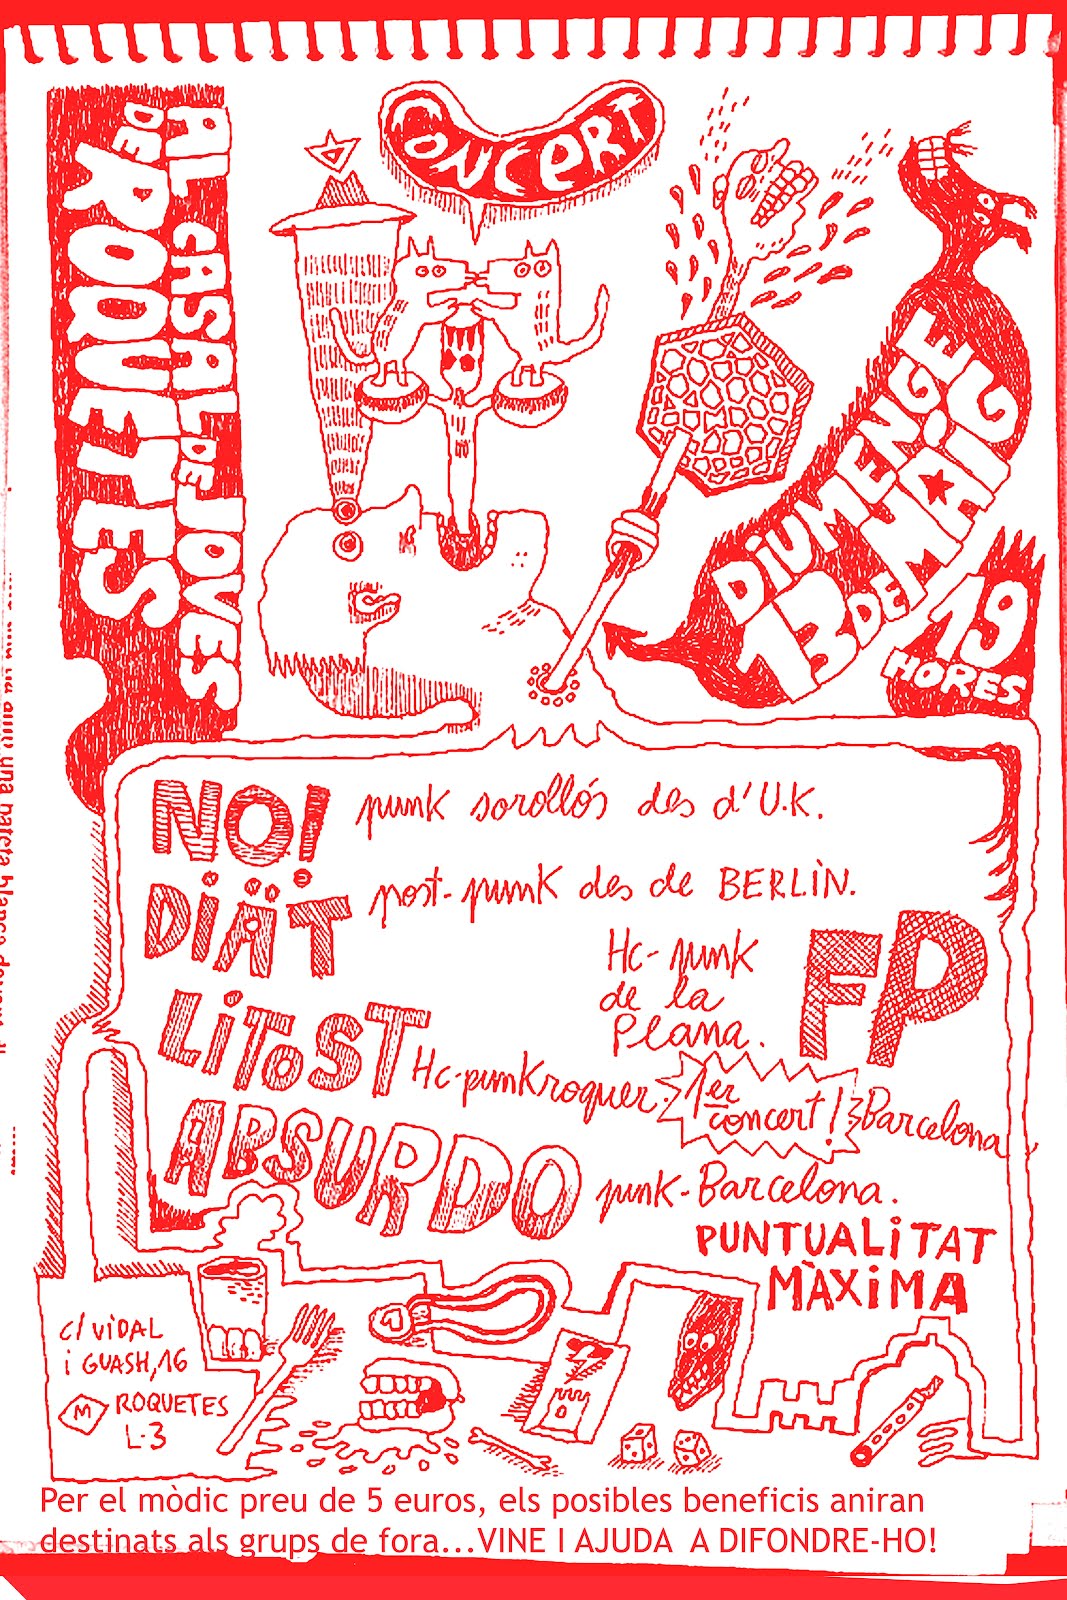 CONCERT
AL CASAL DE JOVES
DE ROQUETES
DIUMENGE
13 DE MAIG
19
HORES
NO! punk sorollós des d'U.K.
DIÄT post-punk des de BERLÌN.
Hc-punk
de la
Plana.
FP
LiToST Hc-punkroquer.
1er
concert!
Barcelona
ABSURDO punk-Barcelona.
PUNTUALiTAT
MÀXiMA
c/ ViDAL
i GUASH, 16
M ROQUETES
L-3
Per el mòdic preu de 5 euros, els posibles beneficis aniran
destinats als grups de fora...VINE I AJUDA A DIFONDRE-HO!